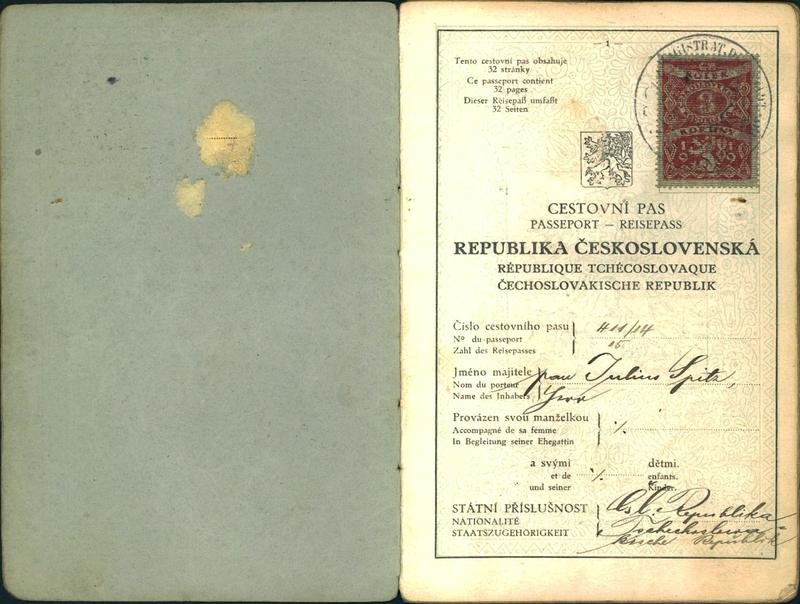 — 1 —
Tento cestovní pas obsahuje
32 stránky
Ce passeport contient
32 pages
Dieser Reisepaß umfaßt
32 Seiten
KOLEK
KORUNY
1919
CESTOVNÍ PAS
PASSEPORT — REISEPASS
REPUBLIKA ČESKOSLOVENSKÁ
RÉPUBLIQUE TCHÉCOSLOVAQUE
ČECHOSLOVAKISCHE REPUBLIK
Číslo cestovního pasu
Nº du passeport
Zahl des Reisepasses
Jméno majitele pan Julius Spitz,
Nom du porteur
Name des Inhabers
Provázen svou manželkou
Accompagné de sa femme
In Begleitung seiner Ehegattin
·/.
a svými dětmi.
et de ·/. enfants.
und seiner Kinder.
STÁTNÍ PŘÍSLUŠNOST Čsl. Republika
NATIONALITÉ Tschechoslowa-
STAATSZUGEHORIGKEIT kische Republik